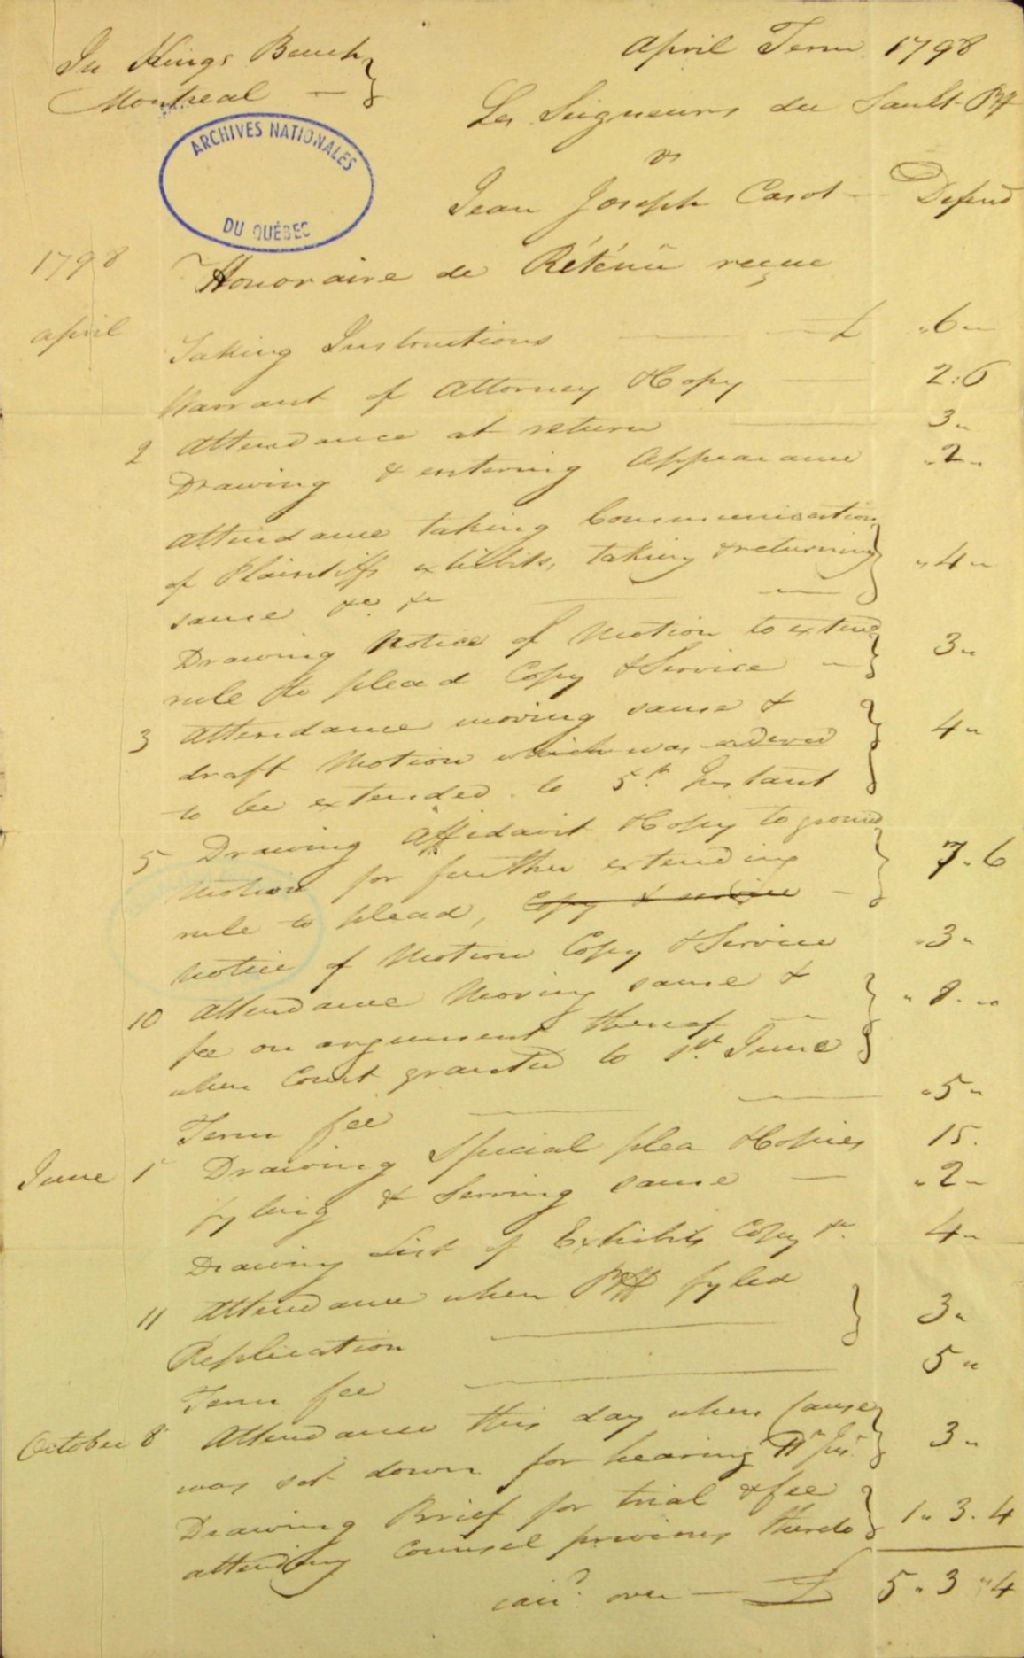 In Kings Bench
Montreal
April Term 1798
Les Seigneurs du Sault Plff
vs
Jean Joseph Casot Defend
ARCHIVES NATIONALES
DU QUÉBEC
1798 Honoraire de Réténüe reçue
april Taking Instructions £ "6"
Warrant of Attorney & Copy 2:6
2 Attendance at return 3"
Drawing & entering Appearance "2"
Attendance taking Communication
of Plaintiffs exhibits, taking & returning "4"
same &c &c
Drawing Notice of Motion to extend
rule to plead Copy & Service 3"
3 Attendance moving same &
draft Motion which was ordered 4"
to be extended to 5th Instant
5 Drawing Affidavit & Copy to ground
Motion for further extending 7"6
rule to plead, Copy & service
Notice of Motion Copy & Service "3"
10 Attendance Moving same &
fee on argument thereof "8"
when Court granted to 1st June
Term fee "5"
June 1 Drawing Special plea & Copies 15.
fyling & Serving same "2"
Drawing List of Exhibits Copy &c 4"
11 Attendance when Plff fyled
Replication 3"
Term fee 5"
October 8 Attendance this day when Cause
was set down for hearing 3"
Drawing Brief for trial & fee
attending Counsel previous thereto 1"3.4
carrd. over £ 5"3"4